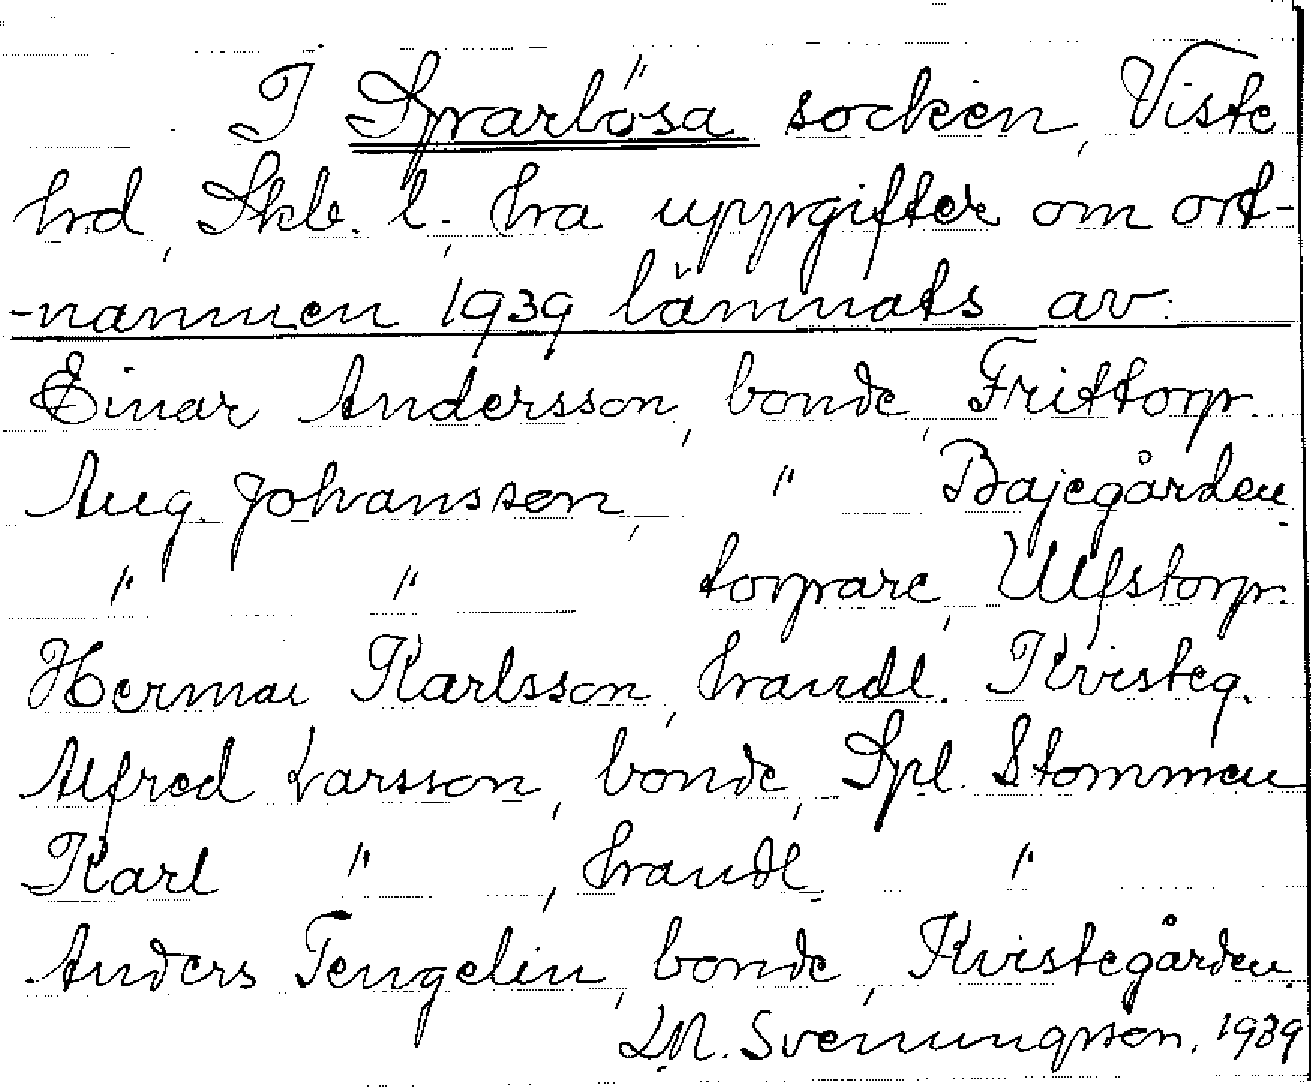 I Sparlösa socken, Viste
hd, Skb. l., ha uppgifter om ort-
-namnen 1939 lämnats av:
Einar Andersson, bonde, Frittorp.
Aug. Johansson, " Bajegården.
" " torpare, Ulfstorp.
Herman Karlsson, handl. Kvisteg.
Alfred Larsson, bonde, Spl. Stommen
Karl " , handl. "
Anders Tengelin, bonde, Kvistegården.
Svenungsson. 1939